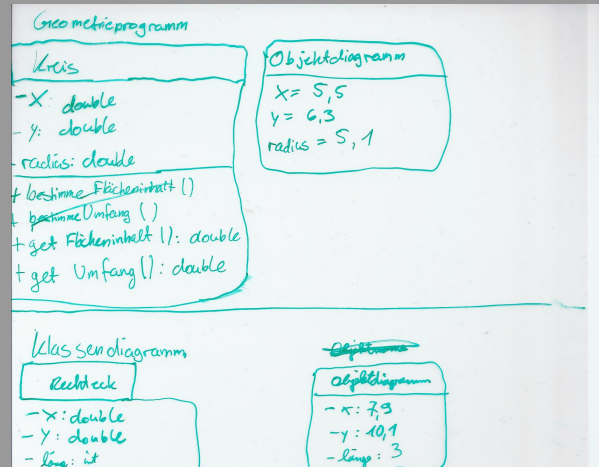 Geometrieprogramm
Kreis
- X: double
- y: double
- radius: double
+ bestimme Flächeninhalt ()
+ bestimme Umfang ()
+ get Flächeninhalt (): double
+ get Umfang (): double
Objektdiagramm
X = 5,5
y = 6,3
radius = 5,1
Klassendiagramm
Rechteck
- X: double
- Y: double
- länge: int
Objektdiagramm
- x: 7,9
- y: 10,1
- länge: 3